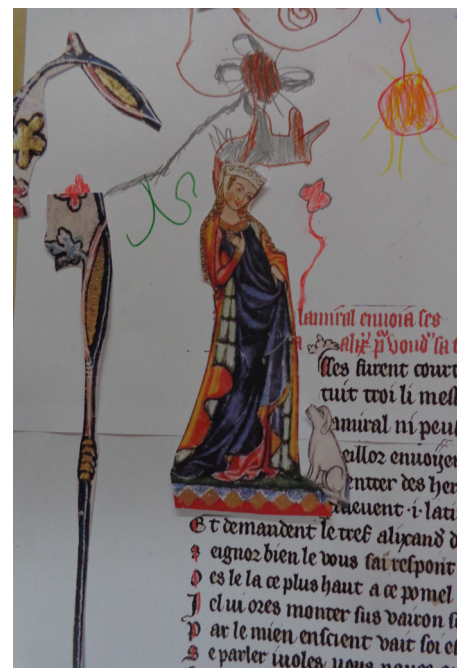 lamiral enuoia ses
a alix. p̄ vond' sa
ses furent court
tuit troi li mess
amiral ni peu
eillor enuoyer
entrer des her
trueuent .i. lati
Et demandent le tref alixand' d
seignor bien le vous sai respont
oes le la ce plus haut a ce pomel
Icl ui ores monter sus vairon s
Par le mien enscient vait soi es
Se parler uoles vous